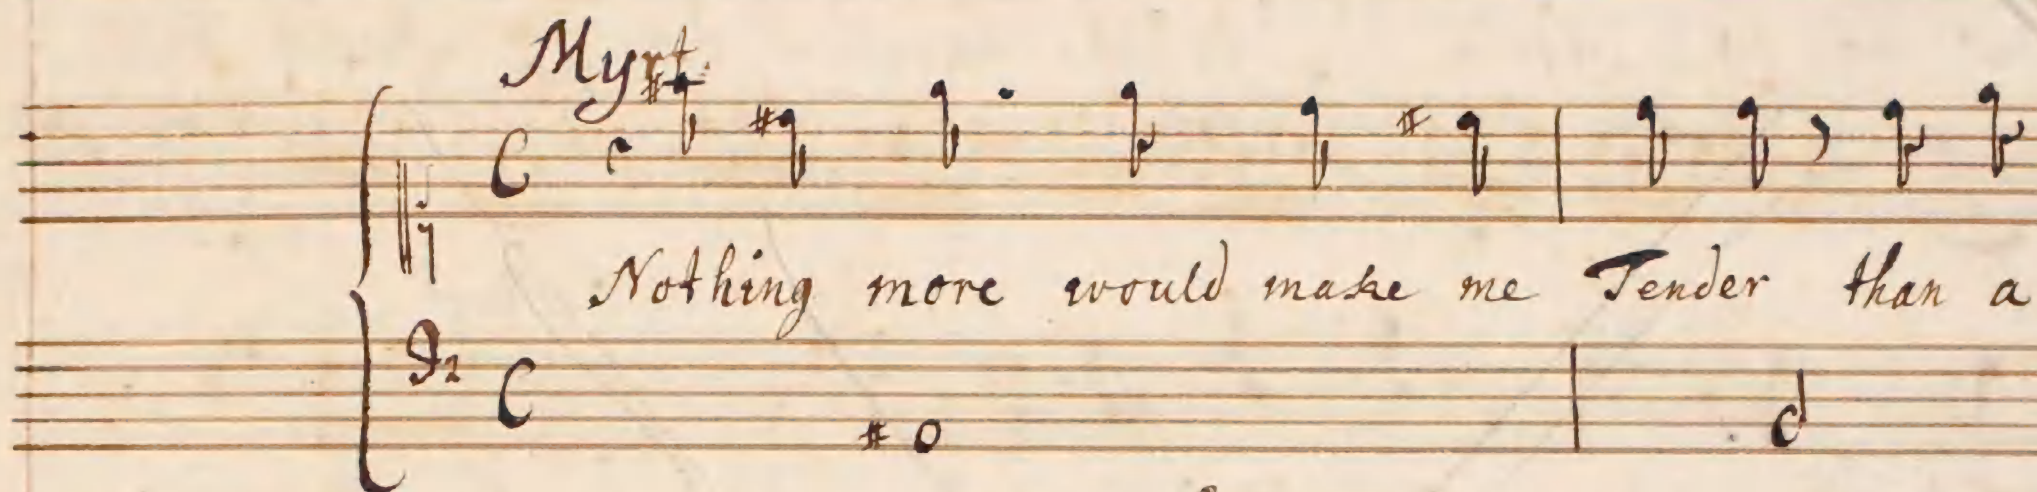 Myrt.
Nothing more would make me Tender than a